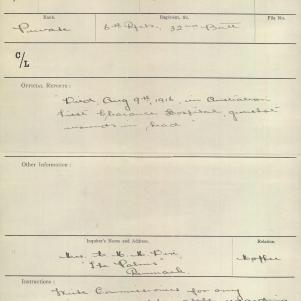 Rank. Regiment, &c. File No.
Private 6th Rfts. 32nd Batt
C/L
OFFICIAL REPORTS:
"Died, Aug 9th, 1916, in Australian
Clearance Hospital, gunshot
wounds in head"
Other Information:
Inquirer's Name and Address. Relation.
Mrs. M.
"The Palms" Mother
Renmark
Instructions:
Write Commissioner for any